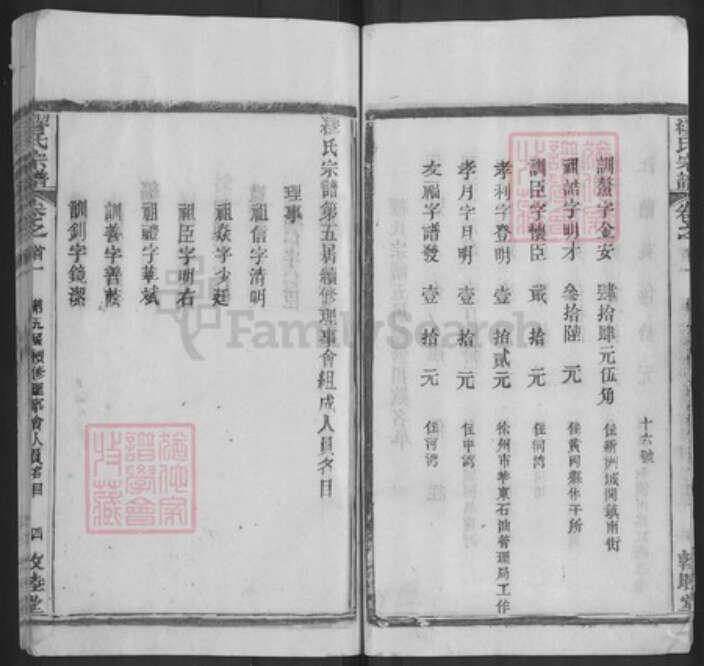 訓鰲字金安 肆拾肆元伍角 住新洲城関鎮南街
十六號
祖誥字明才 叁拾陸元 住黄岡縣休干所
訓臣字懷臣 貳拾元 住河湾
孝利字登明 壹拾貳元 徐州市華東石油管理局工作
孝月字日明 壹拾元 住中湾
友福字譜發 壹拾元 住河湾
宗譜 卷之
氏宗譜第五届續修理事會組成人員名目
理事
祖信字清明
祖焱字少廷
祖臣字明右
祖禮字華斌
訓善字善
訓釗字鏡潔
氏宗譜 卷之首一 第五届續修理事會人員名目 四 敦睦堂
FamilySearch